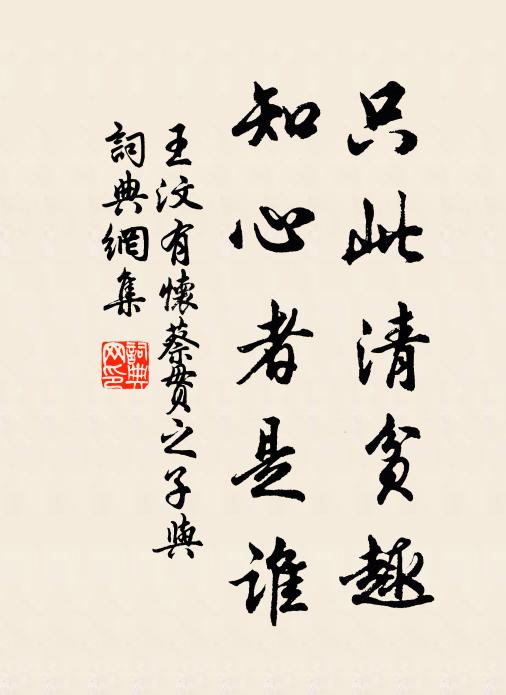 只此清貧趣
知心者是誰
王汶有懷蔡貫之子與
詞典網集
詞典網印